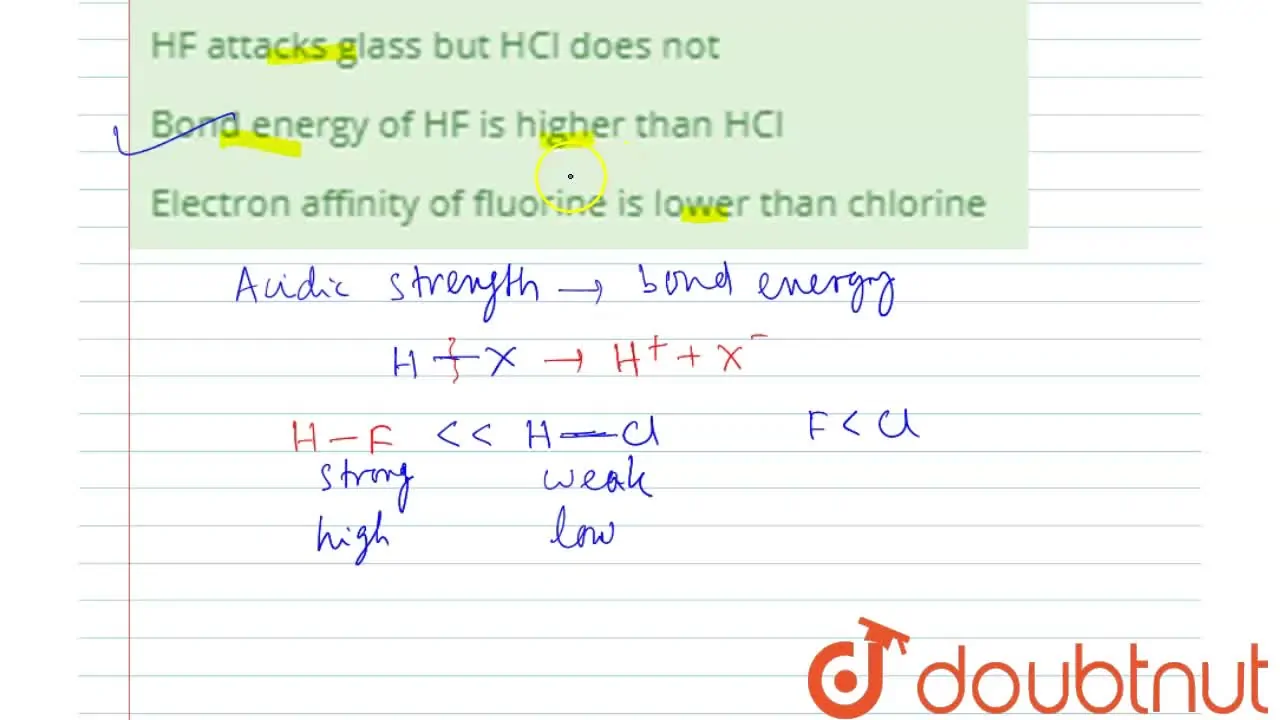 HF attacks glass but HCl does not
Bond energy of HF is higher than HCl
Electron affinity of fluorine is lower than chlorine
Acidic strength → bond energy
H—X → H⁺ + X⁻
H—F << H—Cl F < Cl
strong weak
high low
doubtnut